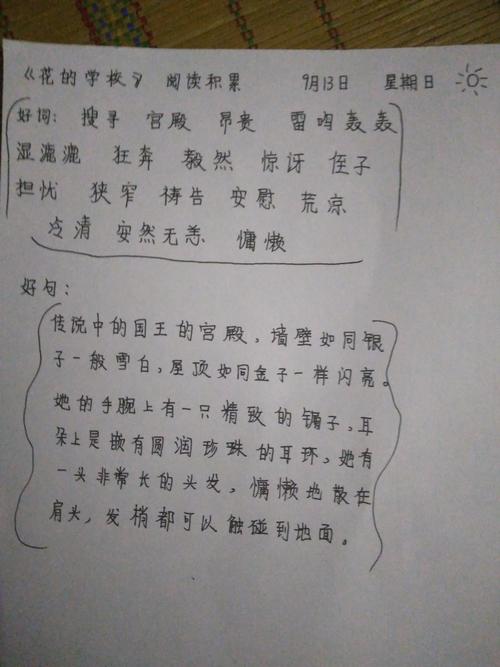 《花的学校》 阅读积累 9月13日 星期日
好词: 搜寻 宫殿 昂贵 雷鸣轰轰
湿漉漉 狂奔 毅然 惊讶 侄子
担忧 狭窄 祷告 安慰 荒凉
冷清 安然无恙 慵懒
好句:
传说中的国王的宫殿,墙壁如同银
子一般雪白,屋顶如同金子一样闪亮。
她的手腕上有一只精致的镯子,耳
朵上是嵌有圆润珍珠的耳环,她有
一头非常长的头发,慵懒地散在
肩头,发梢都可以触碰到地面。